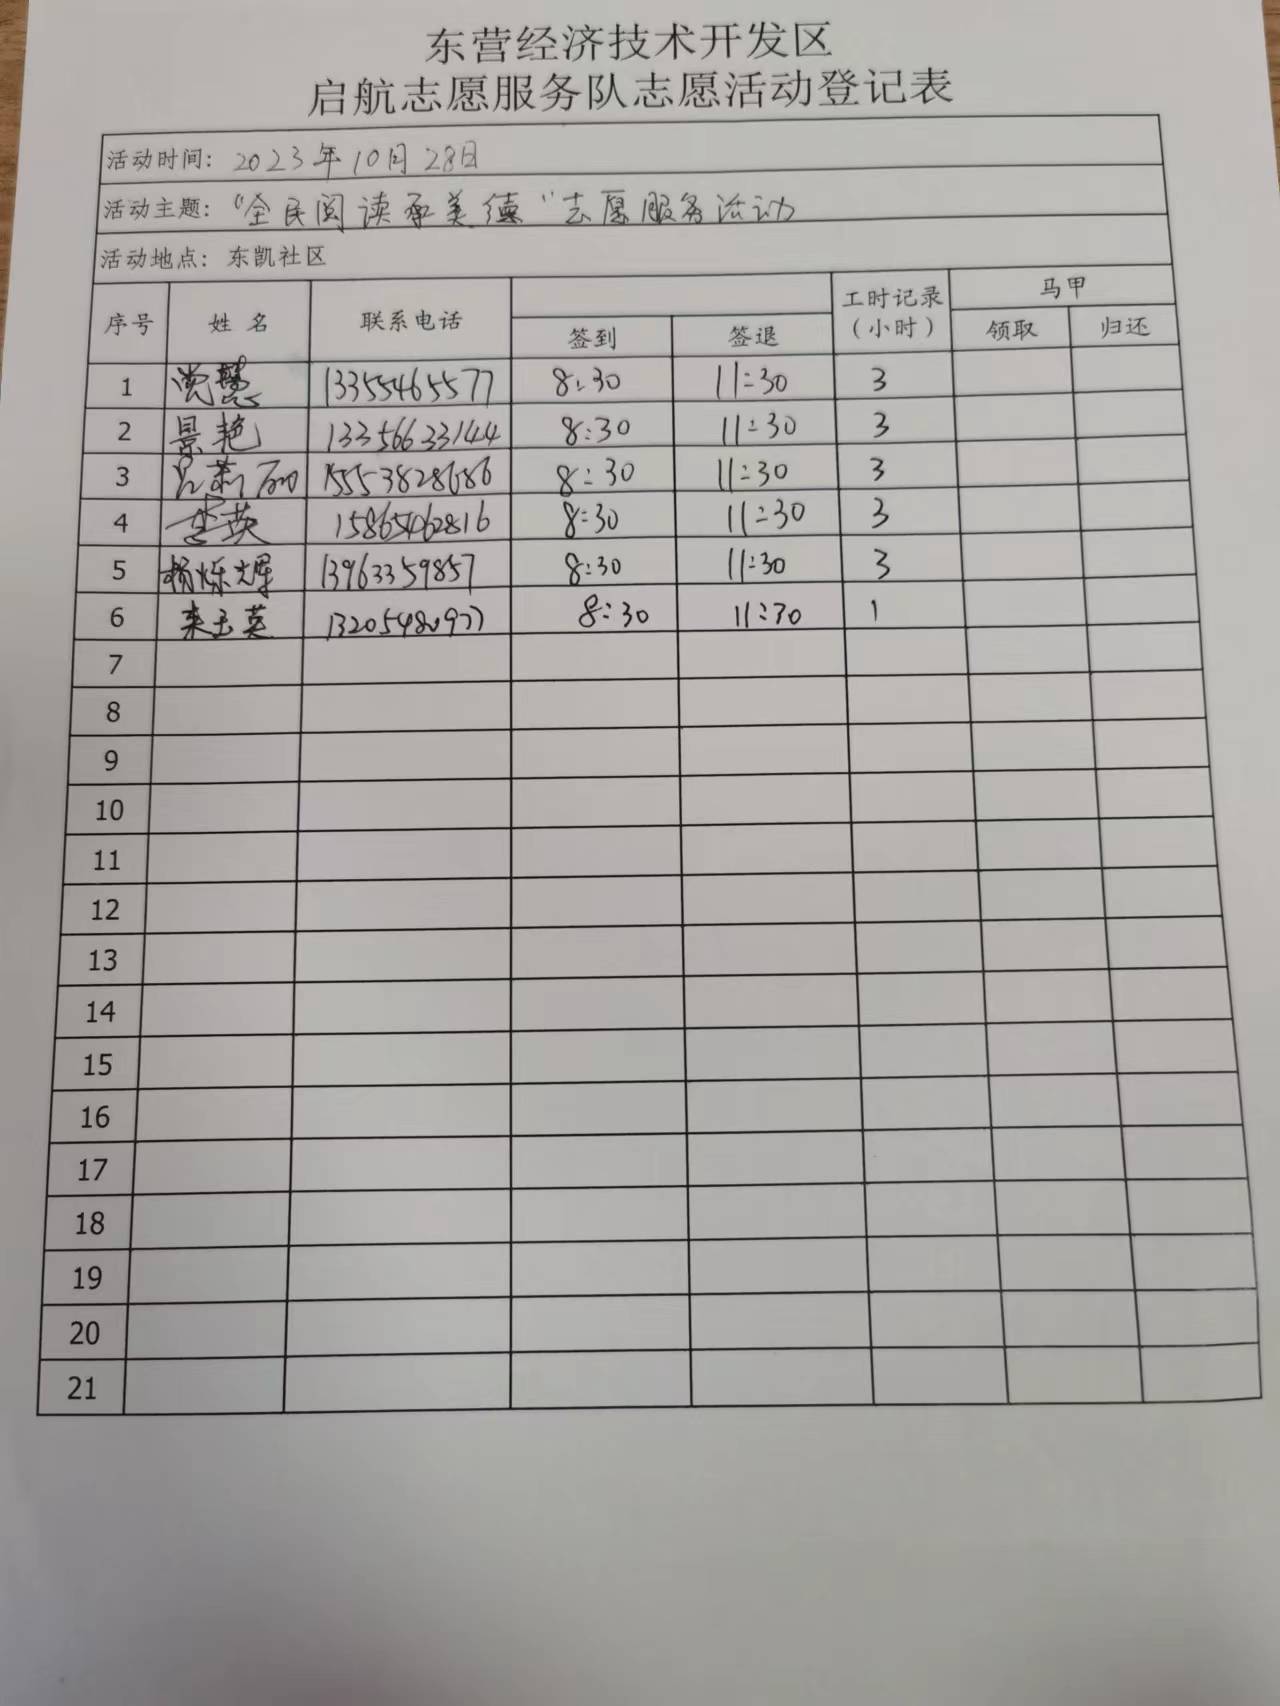 东营经济技术开发区
启航志愿服务队志愿活动登记表
活动时间：2023年10月28日
活动主题："全民阅读承美德"志愿服务活动
活动地点：东凯社区
序号 姓名 联系电话 签到 签退 工时记录（小时） 马甲 领取 归还
1 13355465577 8:30 11:30 3
2 景艳 13356633144 8:30 11:30 3
3 15553828686 8:30 11:30 3
4 李英 15865462816 8:30 11:30 3
5 杨烁辉 13963359857 8:30 11:30 3
6 来玉英 13205480977 8:30 11:30 1
7
8
9
10
11
12
13
14
15
16
17
18
19
20
21